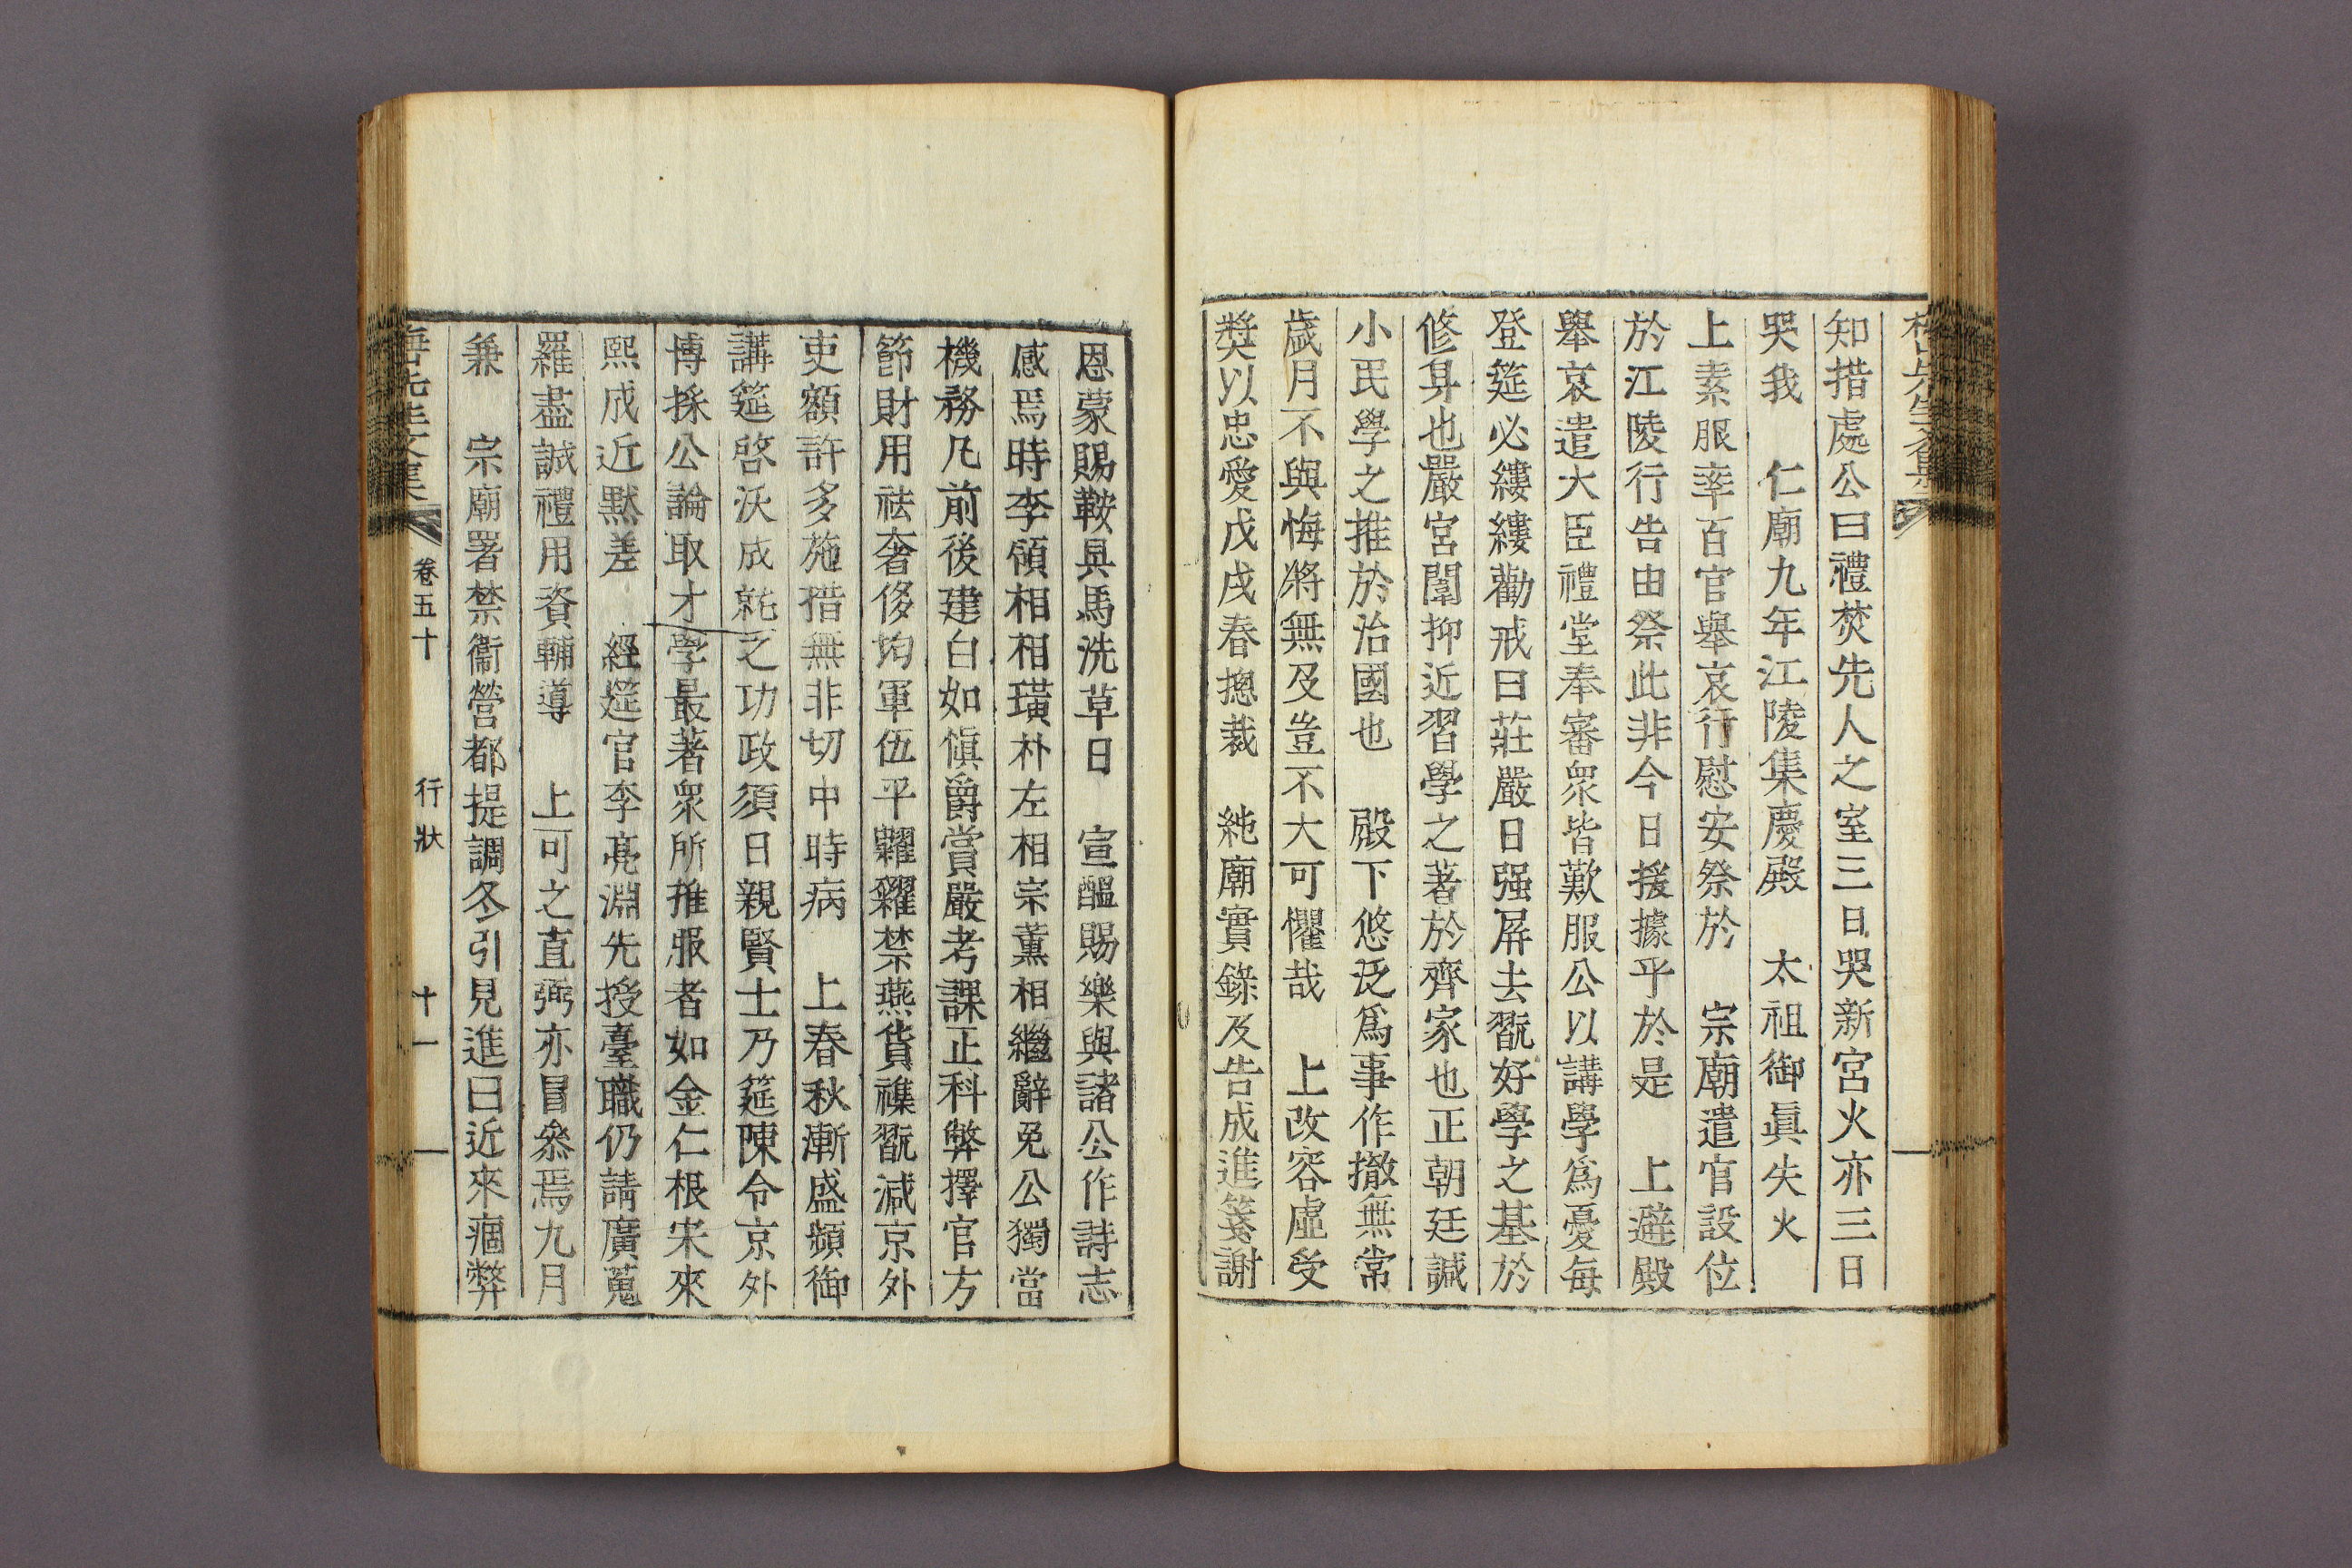 知措處公曰禮焚先人之室三日哭新宮火亦三日
哭我　仁廟九年江陵集慶殿　太祖御眞失火
上素服率百官舉哀行慰安祭於　宗廟遣官設位
於江陵行告由祭此非今日援據乎於是　上避殿
舉哀遣大臣禮堂奉審衆皆歎服公以講學爲憂每
登筵必縷縷勸戒曰莊嚴日强屛去翫好學之基於
修身也嚴宮闈抑近習學之著於齊家也正朝廷諴
小民學之推於治國也　殿下悠泛爲事作撤無常
歲月不與悔將無及豈不大可懼哉　上改容虛受
奬以忠愛戊戌春摠裁　純廟實錄及告成進箋謝
恩蒙賜鞍具馬洗草日　宣醞賜樂與諸公作詩志
感焉時李領相相璜朴左相宗薰相繼辭免公獨當
機務凡前後建白如愼爵賞嚴考課正科弊擇官方
節財用祛奢侈均軍伍平糶糴禁燕貨襍翫减京外
吏額許多施措無非切中時病　上春秋漸盛頻御
講筵啓沃成就之功政須日親賢士乃筵陳令京外
博採公論取才學最著衆所推服者如金仁根宋來
熙成近默差　經筵官李亮淵先授臺職仍請廣蒐
羅盡誠禮用資輔導　上可之直弼亦冒叅焉九月
兼　宗廟署禁衞營都提調冬引見進曰近來痼弊
先生文集　卷五十　行狀　十一